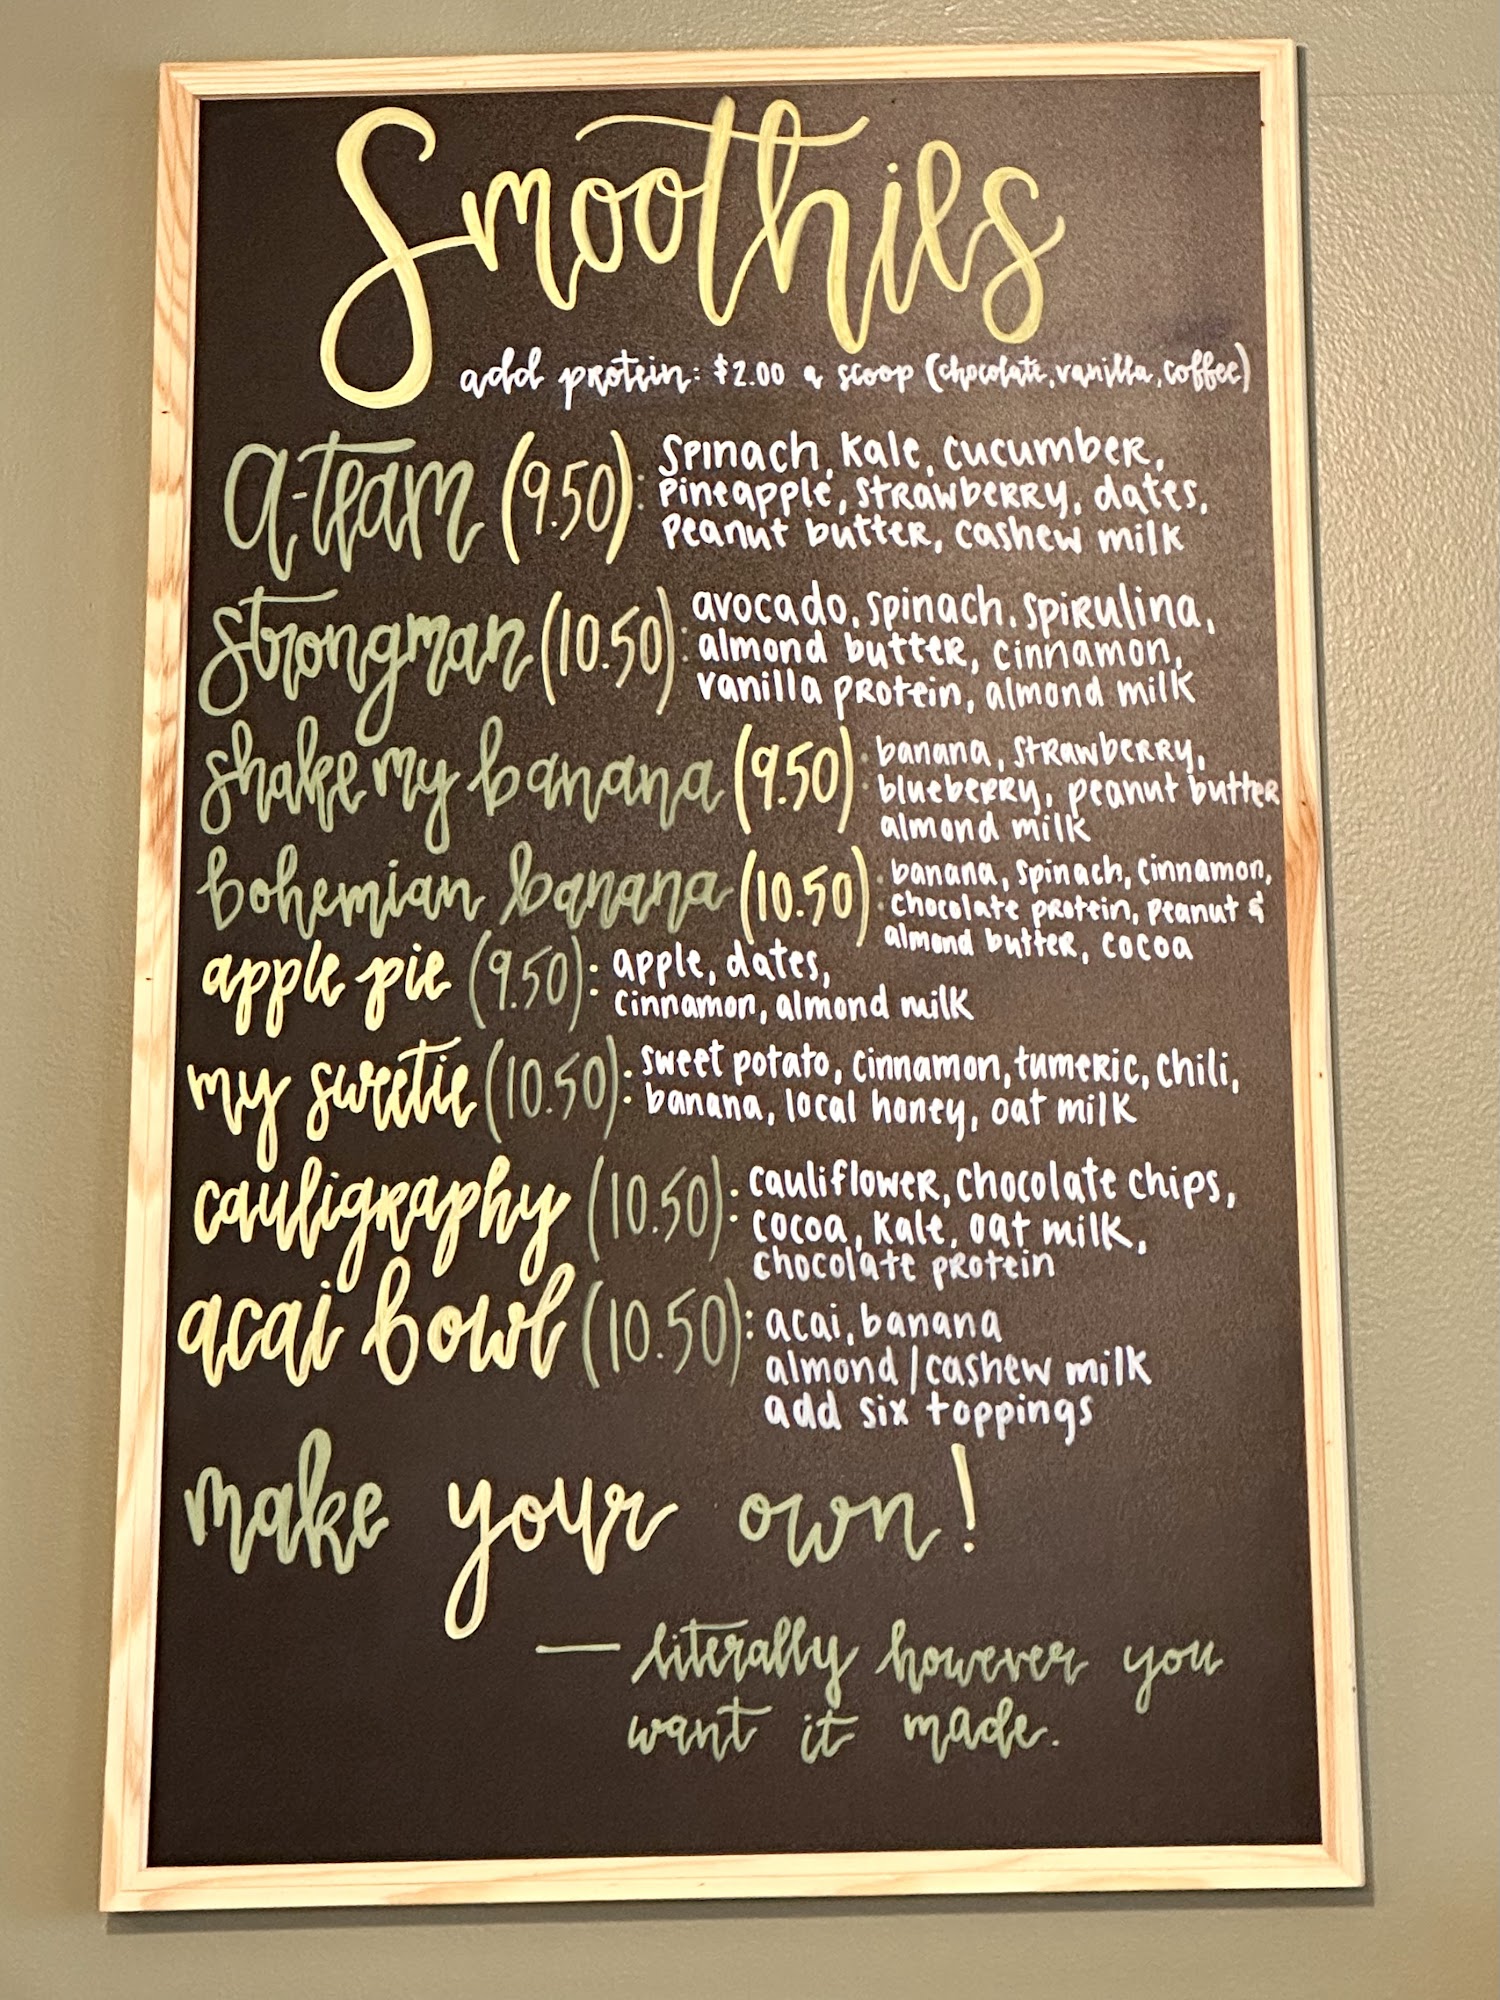 Smoothies
add protein: $2.00 a scoop (chocolate, vanilla, coffee)
a-team (9.50): spinach, kale, cucumber,
pineapple, strawberry, dates,
peanut butter, cashew milk
strongman (10.50): avocado, spinach, spirulina,
almond butter, cinnamon,
vanilla protein, almond milk
shake my banana (9.50): banana, strawberry,
blueberry, peanut butter
almond milk
bohemian banana (10.50): banana, spinach, cinnamon,
chocolate protein, peanut &
almond butter, cocoa
apple pie (9.50): apple, dates,
cinnamon, almond milk
my sweetie (10.50): sweet potato, cinnamon, tumeric, chili,
banana, local honey, oat milk
cauligraphy (10.50): cauliflower, chocolate chips,
cocoa, kale, oat milk,
chocolate protein
acai bowl (10.50): acai, banana
almond/cashew milk
add six toppings
make your own!
— literally however you
want it made.